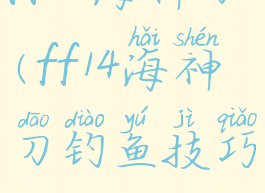 hǎi shén
(ff14海神
dāo diào yú jì qiǎo
刀钓鱼技巧